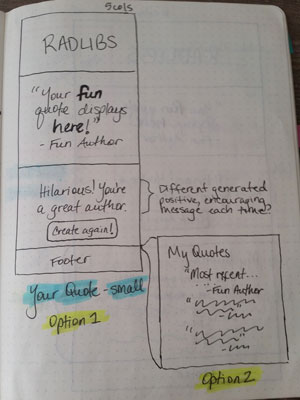 5 cols
RADLIBS
"Your fun
quote displays
here!"
- Fun Author
Hilarious! You're
a great author.
Create again!
Different generated
positive, encouraging
message each time!?
Footer
Your Quote - small
Option 1
My Quotes
"Most recent...
- Fun Author
Option 2